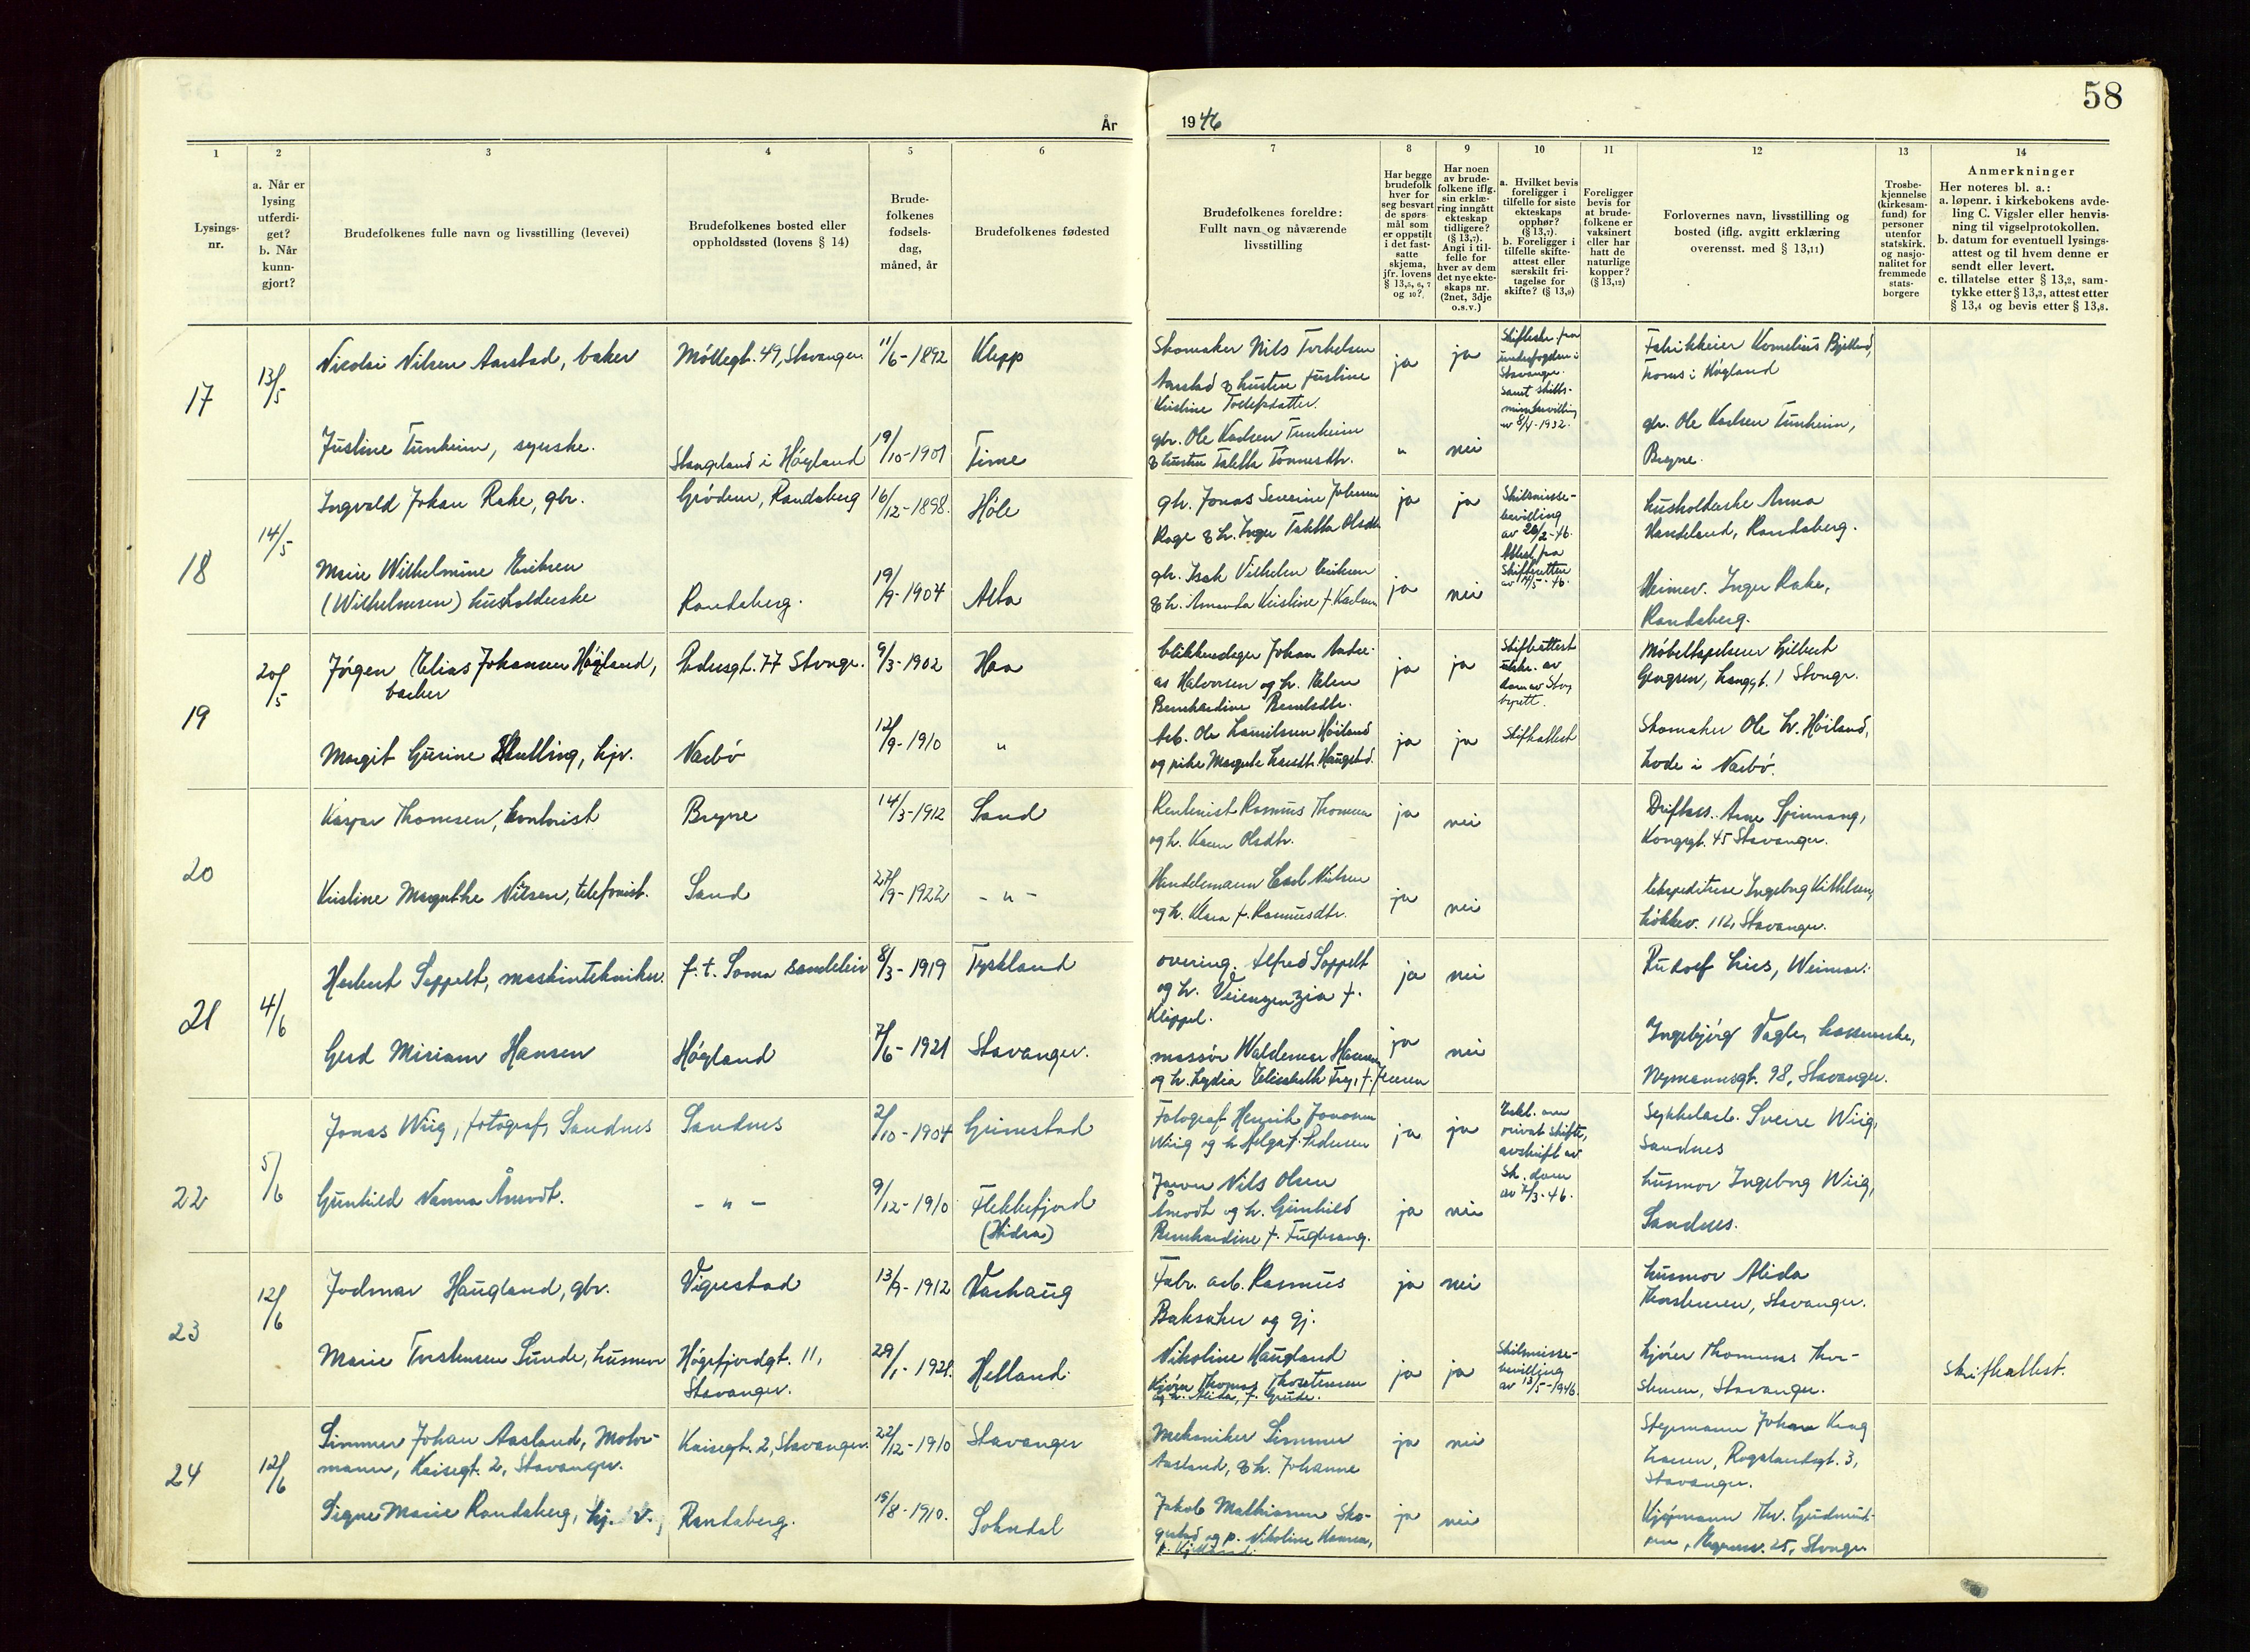 58
År
1946
1
2
3
4
5
6
7
8
9
10
11
12
13
14
Lysings-
nr.
a. Når er
lysing
utferdi-
get?
b. Når
kunn-
gjort?
Brudefolkenes fulle navn og livsstilling (levevei)
Brudefolkenes bosted eller
oppholdssted (lovens § 14)
Brude-
folkenes
fødsels-
dag,
måned, år
Brudefolkenes fødested
Brudefolkenes foreldre:
Fullt navn og nåværende
livsstilling
Har begge
brudefolk
hver for
seg besvart
de spørs-
mål som
er oppstilt
i det fast-
satte
skjema,
jfr. lovens
§ 13,5, 6, 7
og 10?
Har noen
av brude-
folkene iflg.
sin erklæ-
ring inngått
ekteskap
tidligere?
(§ 13,7).
Angi i til-
felle for
hver av dem
det nye ekte-
skaps nr.
(2net, 3dje
o.s.v.)
a. Hvilket bevis
foreligger i
tilfelle for siste
ekteskaps
opphør?
(§ 13,7).
b. Foreligger i
tilfelle skifte-
attest eller
særskilt fri-
tagelse for
skifte? (§ 13,9)
Foreligger
bevis for
at brude-
folkene er
vaksinert
eller har
hatt de
naturlige
kopper?
(§ 13,12)
Forlovernes navn, livsstilling og
bosted (iflg. avgitt erklæring
overensst. med § 13,11)
Trosbe-
kjennelse
(kirkesam-
fund) for
personer
utenfor
statskirk.
og nasjo-
nalitet for
fremmede
stats-
borgere
Anmerkninger
Her noteres bl. a.:
a. løpenr. i kirkebokens avde-
ling C. Vigsler eller henvis-
ning til vigselprotokollen.
b. datum for eventuell lysings-
attest og til hvem denne er
sendt eller levert.
c. tillatelse etter § 13,2, sam-
tykke etter § 13,3, attest etter
§ 13,4 og bevis etter § 13,8.
17
13/5
Nicolai Nilsen Aarstad, baker
Møllegt. 49, Stavanger.
11/6-1892
Klepp
Skomaker Nils Torkelsen
Aarstad & hustru Justine
Kristine Todelsdatter.
ja
ja
Stavanger.
av 8/4-1932.
Fabrikkeier Kornelius Bjelland,
Foros i Høgland
Justine Tunheim, syerske.
Stangeland i Høyland
19/10-1901
Time
gbr. Ole Karlsen Tunheim
& hustru Taletta Tønnesdtr.
"
nei
gbr. Ole Karlsen Tunheim,
Bryne.
18
14/5
Ingvald Johan Rake, gbr.
Grødem, Randaberg
16/12-1898.
Høle
gbr. Jonas Severine Johnsen
Rage & h. Inger Taletta Olsdtr
ja
ja
Skilsmisse-
bevilling
av 26/2-46.
Attest fra
Skifteretten
av 14/5-46.
husholderske Anna
Handeland, Randaberg.
Marie Wilhelmine Eriksen
(Wilhelmsen) husholderske
Randaberg.
19/9-1904
Alta
gbr. Isak Vilhelm Eriksen
& h. Amanda Kristine f. Karlsen
ja
nei
Heimev. Inger Rake,
Randaberg.
19
20/5
Jørgen Elias Johansen Høgland,
baker
Pedersgt. 77 Stvngr.
9/3-1902
Haa
blikkenslager Johan Andre-
as Halvorsen og h. Elen
Bernhardine Berntsdtr.
ja
ja
Skifteattest
utskr. av
dom av Stvg
byrett.
Møbeltapetserer Gilbert
Gingsen, Langgt. 1 Stvngr.
Margit Gurine Hulling, hjv.
Nærbø
12/9-1910
"
Arb. Ole Larsen Høiland
og pike Margrete Larsdtr. Haugstad.
ja
ja
Skifteattest
Skomaker Ole H. Høiland,
Lode i Nærbø.
20
Kaspar Thomsen, kontorist
Bryne
14/3-1912
Sand
Rentenist Rasmus Thomsen
og h. Karen Olsdtr.
ja
nei
Driftass. Arne Spinnang,
Kongsgt. 45 Stavanger.
Kristine Margrethe Nilsen, telefonist.
Sand
27/9-1922
- " -
Handelsmann Carl Nilsen
og h. Klara f. Rasmusdtr.
ja
nei
Ekspeditrise Ingeborg Kittelsen,
Løkkev. 112, Stavanger.
21
4/6
Herbert Seppelt, maskintekniker.
f. t. Soma Sandeleir
8/3-1919
Tyskland
overing. Alfred Seppelt
og h. Veiengenzia f.
Klippel.
ja
nei
Rudolf Lies, Weimar.
Gerd Miriam Hansen
Høyland
7/6-1921
Stavanger.
massør Waldemar Hansen
og h. Lydia Elisabeth Frey, f. Jensen
ja
nei
Ingebjørg Vagle, kassererske,
Nymannsgt. 98, Stavanger.
22
5/6
Jonas Wiig, fotograf, Sandnes
Sandnes
2/10-1904
Grimstad
Fotograf Henrik Jonassen
Wiig og h. Helga f. Pedersen
ja
ja
Erkl. om
privat skifte,
avskrift av
Sk. dom
av 7/3-46.
Sykkelarb. Sverre Wiig,
Sandnes
Gunhild Nanna Åmodt.
- " -
9/12-1910
Flekkefjord
(Hidra)
Nils Olsen
Åmodt og h. Gunhild
Bernhardine f. Fuglevang.
ja
nei
husmor Ingeborg Wiig,
Sandnes.
23
12/6
Jodmar Haugland, gbr.
Vigrestad
13/9-1912
Varhaug
Fabr. arb. Rasmus
Baksaker og gj.
Nikoline Haugland
ja
nei
husmor Alida
Thorstensen, Stavanger.
Marie Torstensen Sunde, husmor
Høgsfjordgt. 11,
Stavanger.
29/1-1921.
Helland.
Kjører Thomas Thorstensen
og h. Alida, f. Grude.
ja
ja
Skilsmisse-
bevilling
av 13/5-1946.
kjører Thommas Thor-
stensen, Stavanger.
Skifteattest.
24
12/6
Simmer Johan Aasland, Motor-
mann, Kaisegt. 2, Stavanger.
Kaisegt. 2, Stavanger.
22/12-1910
Stavanger
Mekaniker Simmer
Aasland, & h. Johanne
ja
nei
Styrmann Johan Krag
Larsen, Rogalandsgt. 3,
Stavanger.
Signe Marie Randaberg, hj. v.,
Randaberg.
15/8-1910.
Sokndal
Jakob Mathiassen Sko-
gestad og p. Nikoline Hansen,
f. Kjelland.
ja
nei
Kjøpmann Thv. Gudmund-
sen, 25, Stvngr